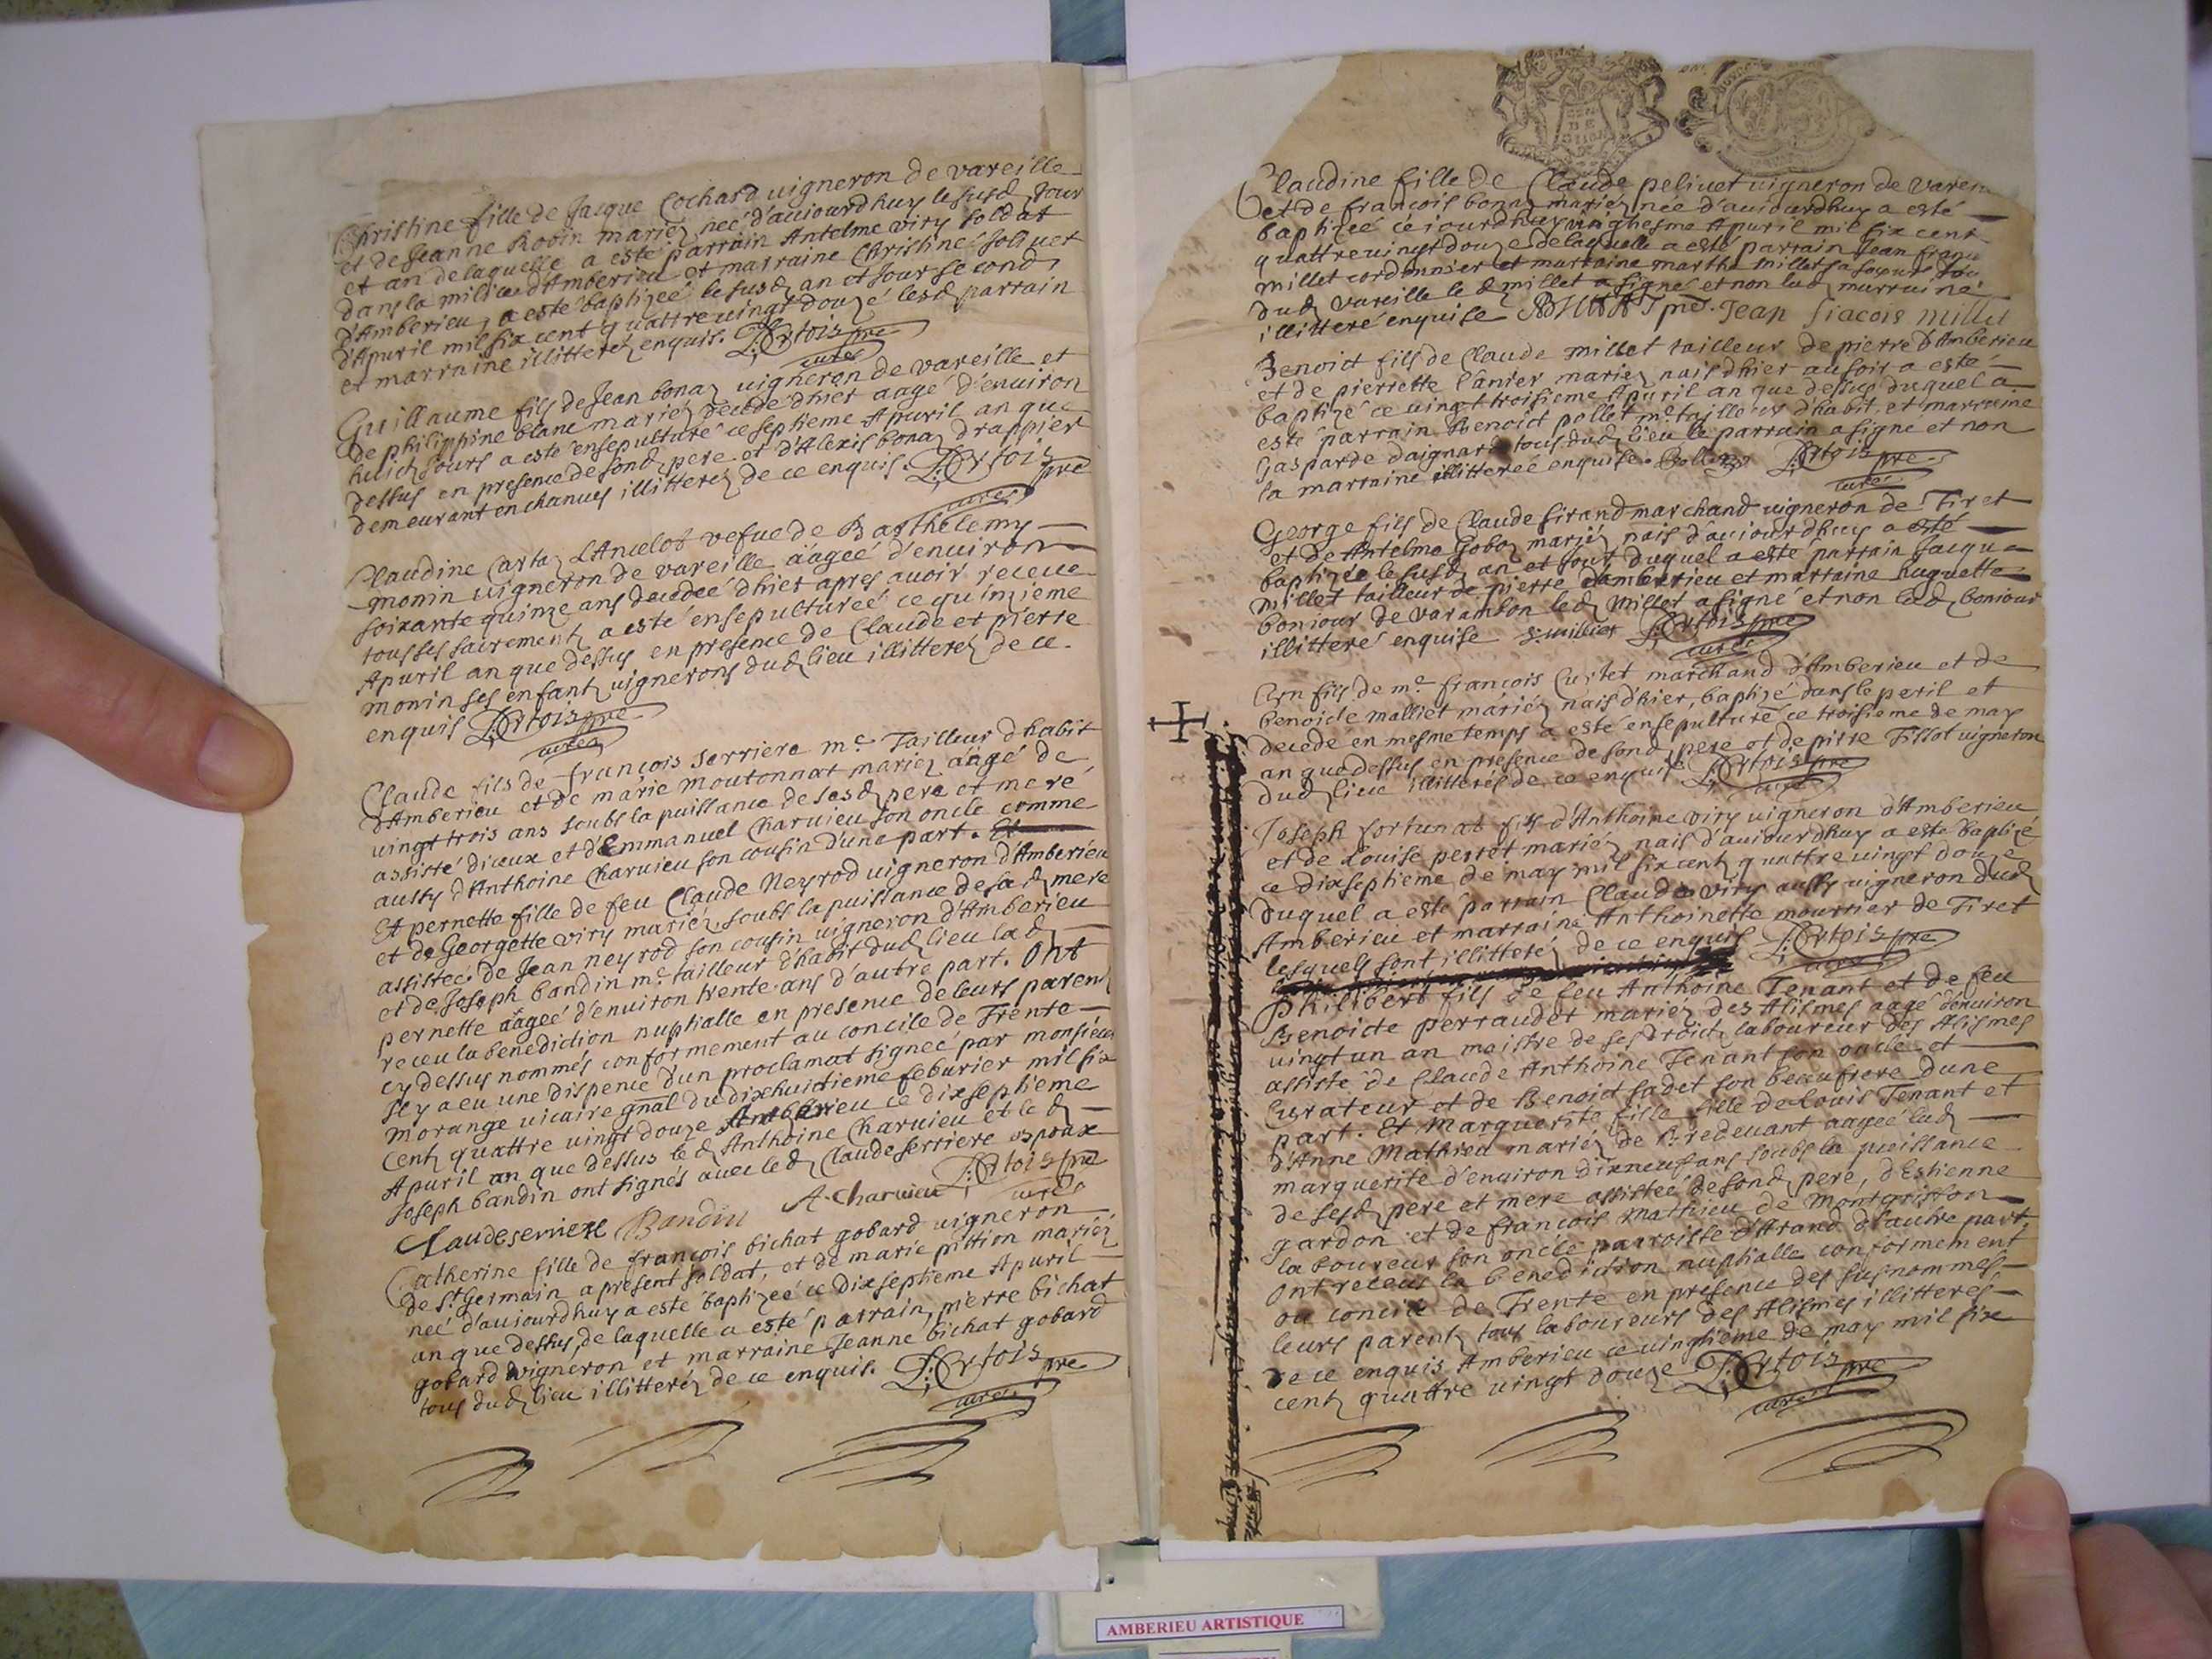 Christine fille de Jacque Cochard uigneron de vareille
et de Jeanne Rouin mariez neé d'auiourdhuy le susd Jour
et an delaquelle a esté parrain Antelme viry soldat
dans la milice d'Amberieu et marraine Christine Joliuet
d'Amberieu, a esté baptizeé le susd an et Jour second
d'Apuril mil six cent quattre uingt douze lesd parrain
et marraine illitterez enquis. D: Ortois pre
curé
Guillaume fils de Jean bonaz uigneron de vareille et
de philippine blanc mariéz decedé dhier aagé d'enuiron
huict Jours a esté ensepulturé ce septieme Apuril an que
dessus en presence de sond pere et d'Alexis bonaz drappier
demeurant en chanues illitterez de ce enquis. D: Ortois pre
curé
Claudine Cartaz L'Ancelot vefue de Barthelemy
monin uigneron de vareille aageé d'enuiron
soixante quinze ans decedeé dhier apres auoir receue
tous ses sacrement a esté ensepultureé ce quinzieme
Apuril an que dessus en presence de Claude et pierre
monin ses enfant uignerons dud lieu illitterez de ce
enquis D: Ortois pre
curé
Claude fils de francois Serriere me Tailleur d'habit
d'Amberieu et de marie Moutonnat mariez aagé de
uingt trois ans soubs la puissance de sesd pere et mere
assisté diceux et d'Emmanuel Charuieu son oncle comme
aussy d'Anthoine Charuieu son cousin d'une part.
Et pernette fille de feu Claude Neyrod uigneron d'Amberieu
et de Georgette viry mariéz soubs la puissance de sad mere
assisteé de Jean neyrod son cousin uigneron d'Amberieu
et de Joseph bandin me tailleur d'habit dud lieu lad
pernette aageé d'enuiron trente ans d'autre part. Ont
receu la benediction nuptialle en presence de leurs parent
cy dessus nommés conformement au concile de Trente
Il y a eu une dispence d'un proclamat signeé par monsieur
Morange uicaire gnal du dixhuictieme feburier mil six
cent quattre uingt douze Amberieu ce dixseptieme
Apuril an que dessus le d Anthoine Charuieu et le d
Joseph bandin ont signés auec le d Claude Serriere espoux
Claude serriere Bandin A. Charuieu D: Ortois pre
curé
Catherine fille de francois bichat gobard uigneron
de St Germain a present soldat, et de marie pittion mariéz
neé d'auiourdhuy a esté baptizeé ce dixseptieme Apuril
an que dessus, de laquelle a esté parrain, pierre bichat
gobard uigneron et marraine Jeanne bichat gobard
tous dud lieu illitteréz de ce enquis. D: Ortois pre
curé
Claudine fille de Claude peliuet uigneron de Varen
et de francois bonaz mariez née d'auiourdhuy a esté
baptizeé ce iourdhuy uingtiesme Apuril mil six cent
quattre uingt douze de laquelle a esté parrain Jean
millet cordonnier et marraine marthe millet sa soeur
dud vareille le d millet a signé et non lad marraine
illitteré enquise pre. Jean millet
Benoict fils de Claude millet tailleur de pierre d'Amberieu
et de pierrette Lanier mariez nais d'hier au soir a esté
baptizé ce uingt troisieme Apuril an que dessus duquel a
esté parrain Benoict pollet me tailleur d'habit et marraine
Gasparde daignard tous dud lieu le parrain a signe et non
la marraine illittereé enquise. D: Ortois pre
curé
George fils de Claude Sirand marchand uigneron de Tiret
et de Antelme Goboz mariéz nais d'auiourdhuy a esté
baptizée le susd an et Jour duquel a esté parrain Jacque
Millet tailleur de pierre d'amberieu et marraine huguette
bonjour de varambon le d Millet a signé et non lad bonjour
illitteré enquise D: Ortois pre
curé
Un fils de me francois Custet marchand d'Amberieu et de
benoicte malliet mariéz nais d'hier, baptizé dans le peril et
decedé en mesme temps a esté ensepulturé ce troisieme de may
an que dessus en presence de sond pere et de pierre Tissot uigneron
dud lieu illitterés de ce enquis D: Ortois pre
curé
Joseph fortunat fils d'Anthoine viry uigneron d'Amberieu
et de Louise perret mariéz nais d'auiourdhuy a esté baptizé
ce dixseptieme de may mil six cent quattre uingt douze
duquel a esté parrain Claude viry aussy uigneron dud
Amberieu et marraine Anthoinette mourrier de Tiret
lesquels sont illitteréz de ce enquis D: Ortois pre
curé
Philibert fils de feu Anthoine Tenant et de feu
Benoicte perraudet mariéz des Alismes aagé d'enuiron
uingt un an maistre de ses droict laboureur des Alismes
assisté de Claude Anthoine Tenant son oncle et
Curateur et de Benoict sadet son beaufrere d'une
part. Et Marguerite fille de Louis Tenant et
d'Anne Mathieu mariéz de Bredeuant aageé lad
marguerite d'enuiron dixneuf ans soubs la puissance
de sesd pere et mere assisteé de sond pere, d'Estienne
gardon et de francois Mathieu de Montgriffon
laboureur son oncle parroisse d'Arand d'autre part,
Ont receus la benediction nuptialle conformement
au concile de Trente en presence des susnommés
leurs parent tous laboureurs des Alismes illitterés
de ce enquis Amberieu ce uingtieme de may mil six
cent quattre uingt douze D: Ortois pre
curé
AMBERIEU ARTISTIQUE